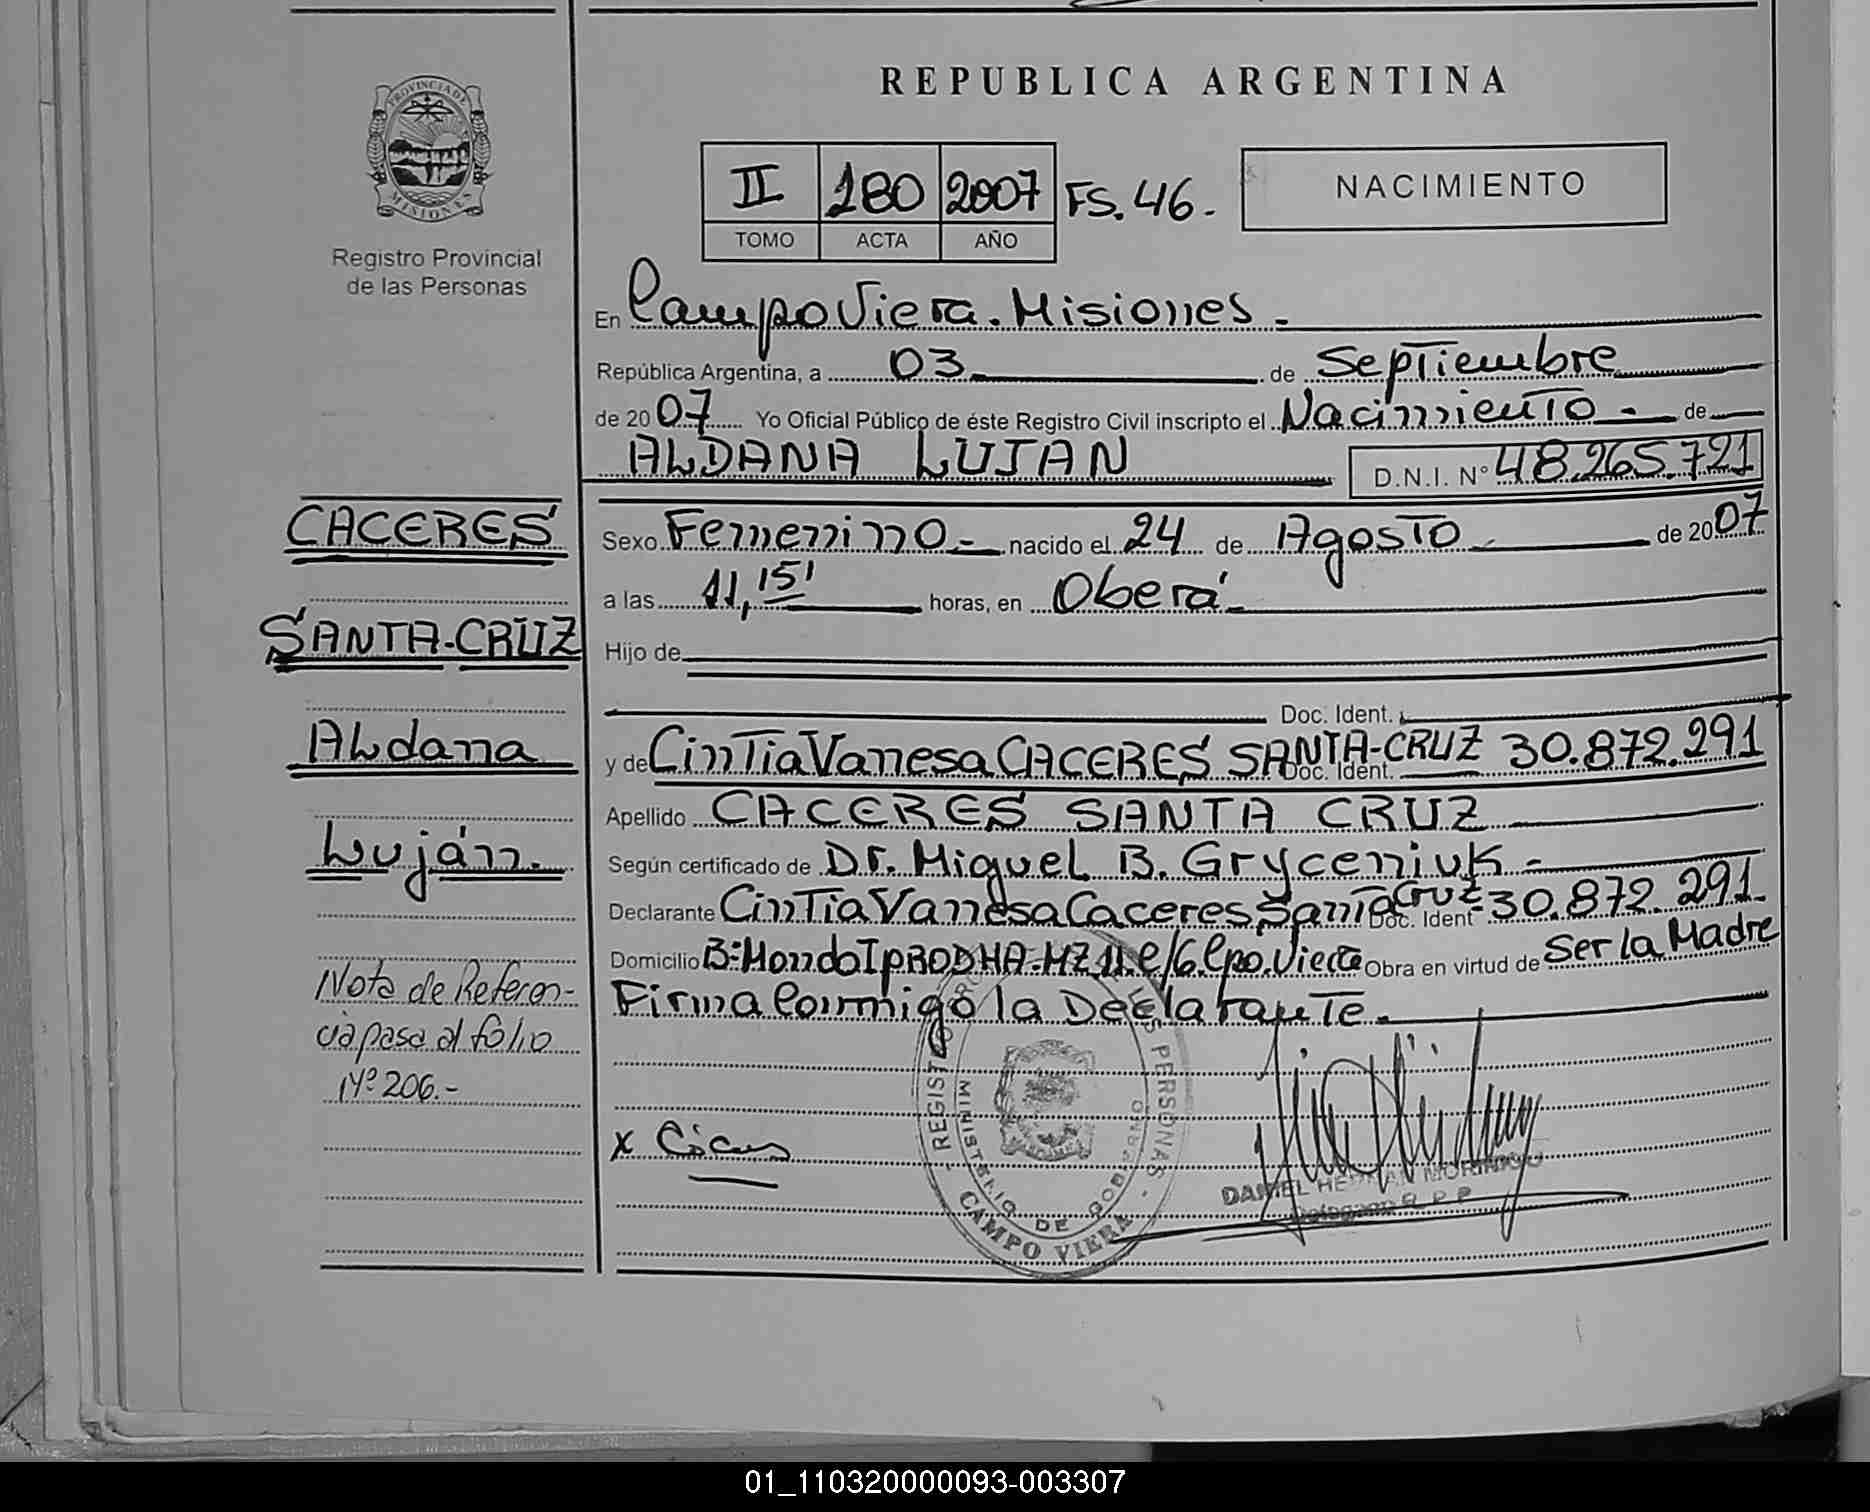 REPUBLICA ARGENTINA
PROVINCIA DE
MISIONES
Registro Provincial
de las Personas
II 180 2007 FS. 46.
TOMO ACTA AÑO
NACIMIENTO
En Campo Viera. Misiones.
República Argentina, a 03 de Septiembre
de 2007 Yo Oficial Público de éste Registro Civil inscripto el Nacimiento - de
ALDANA LUJAN D.N.I. N° 48.265.721
CACERES
SANTA-CRUZ
Aldana
Luján.
Nota de Referen-
cia pasa al folio
Nº 206.-
Sexo Femenino - nacido el 24 de Agosto de 2007
a las 11,15' horas, en Oberá
Hijo de
Doc. Ident.
y de Cintia Vanesa CACERES SANTA-CRUZ Doc. Ident. 30.872.291
Apellido CACERES SANTA CRUZ
Según certificado de Dr. Miguel B. Gryceniuk -
Declarante Cintia Vanesa Caceres Santa Cruz Doc. Ident 30.872.291
Domicilio B: Mondo IPRODHA. MZ 11. C/6 Cpo. Viera Obra en virtud de Ser la Madre
Firma Conmigo la Declarante.
x
REGISTRO PERSONAS
MINISTERIO DE GOBIERNO
CAMPO VIERA
DANIEL
01_110320000093-003307